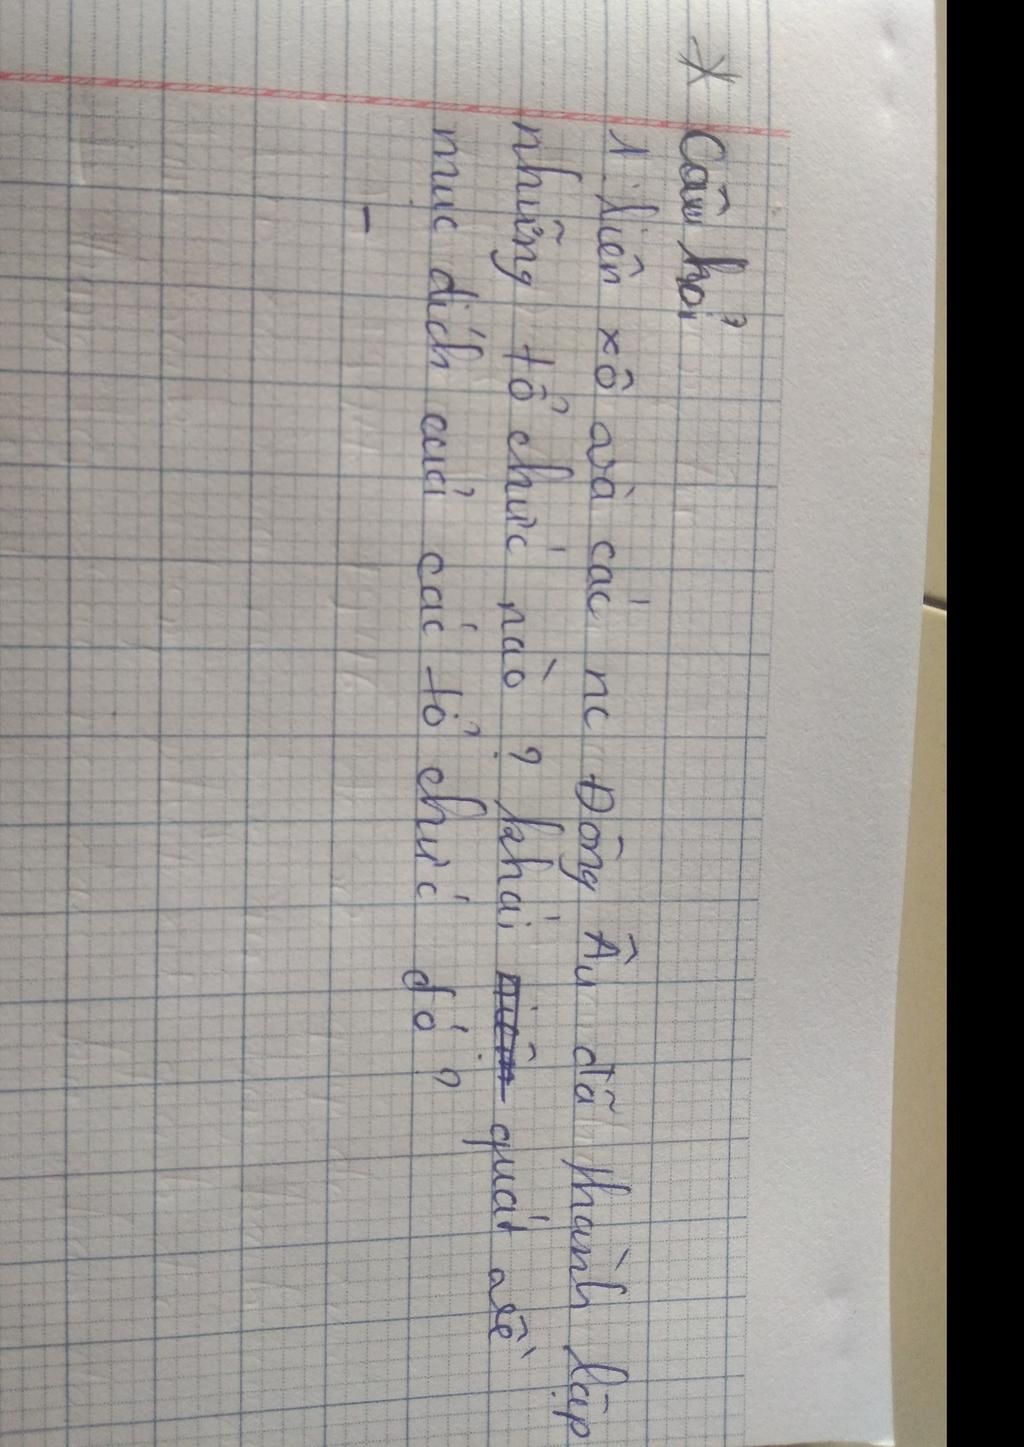 * Câu hỏi
1. Liên xô và các nc Đông Âu đã thành lập
những tổ chức nào ? khái niên quát về
mục đích của các tổ chức đó ?
-